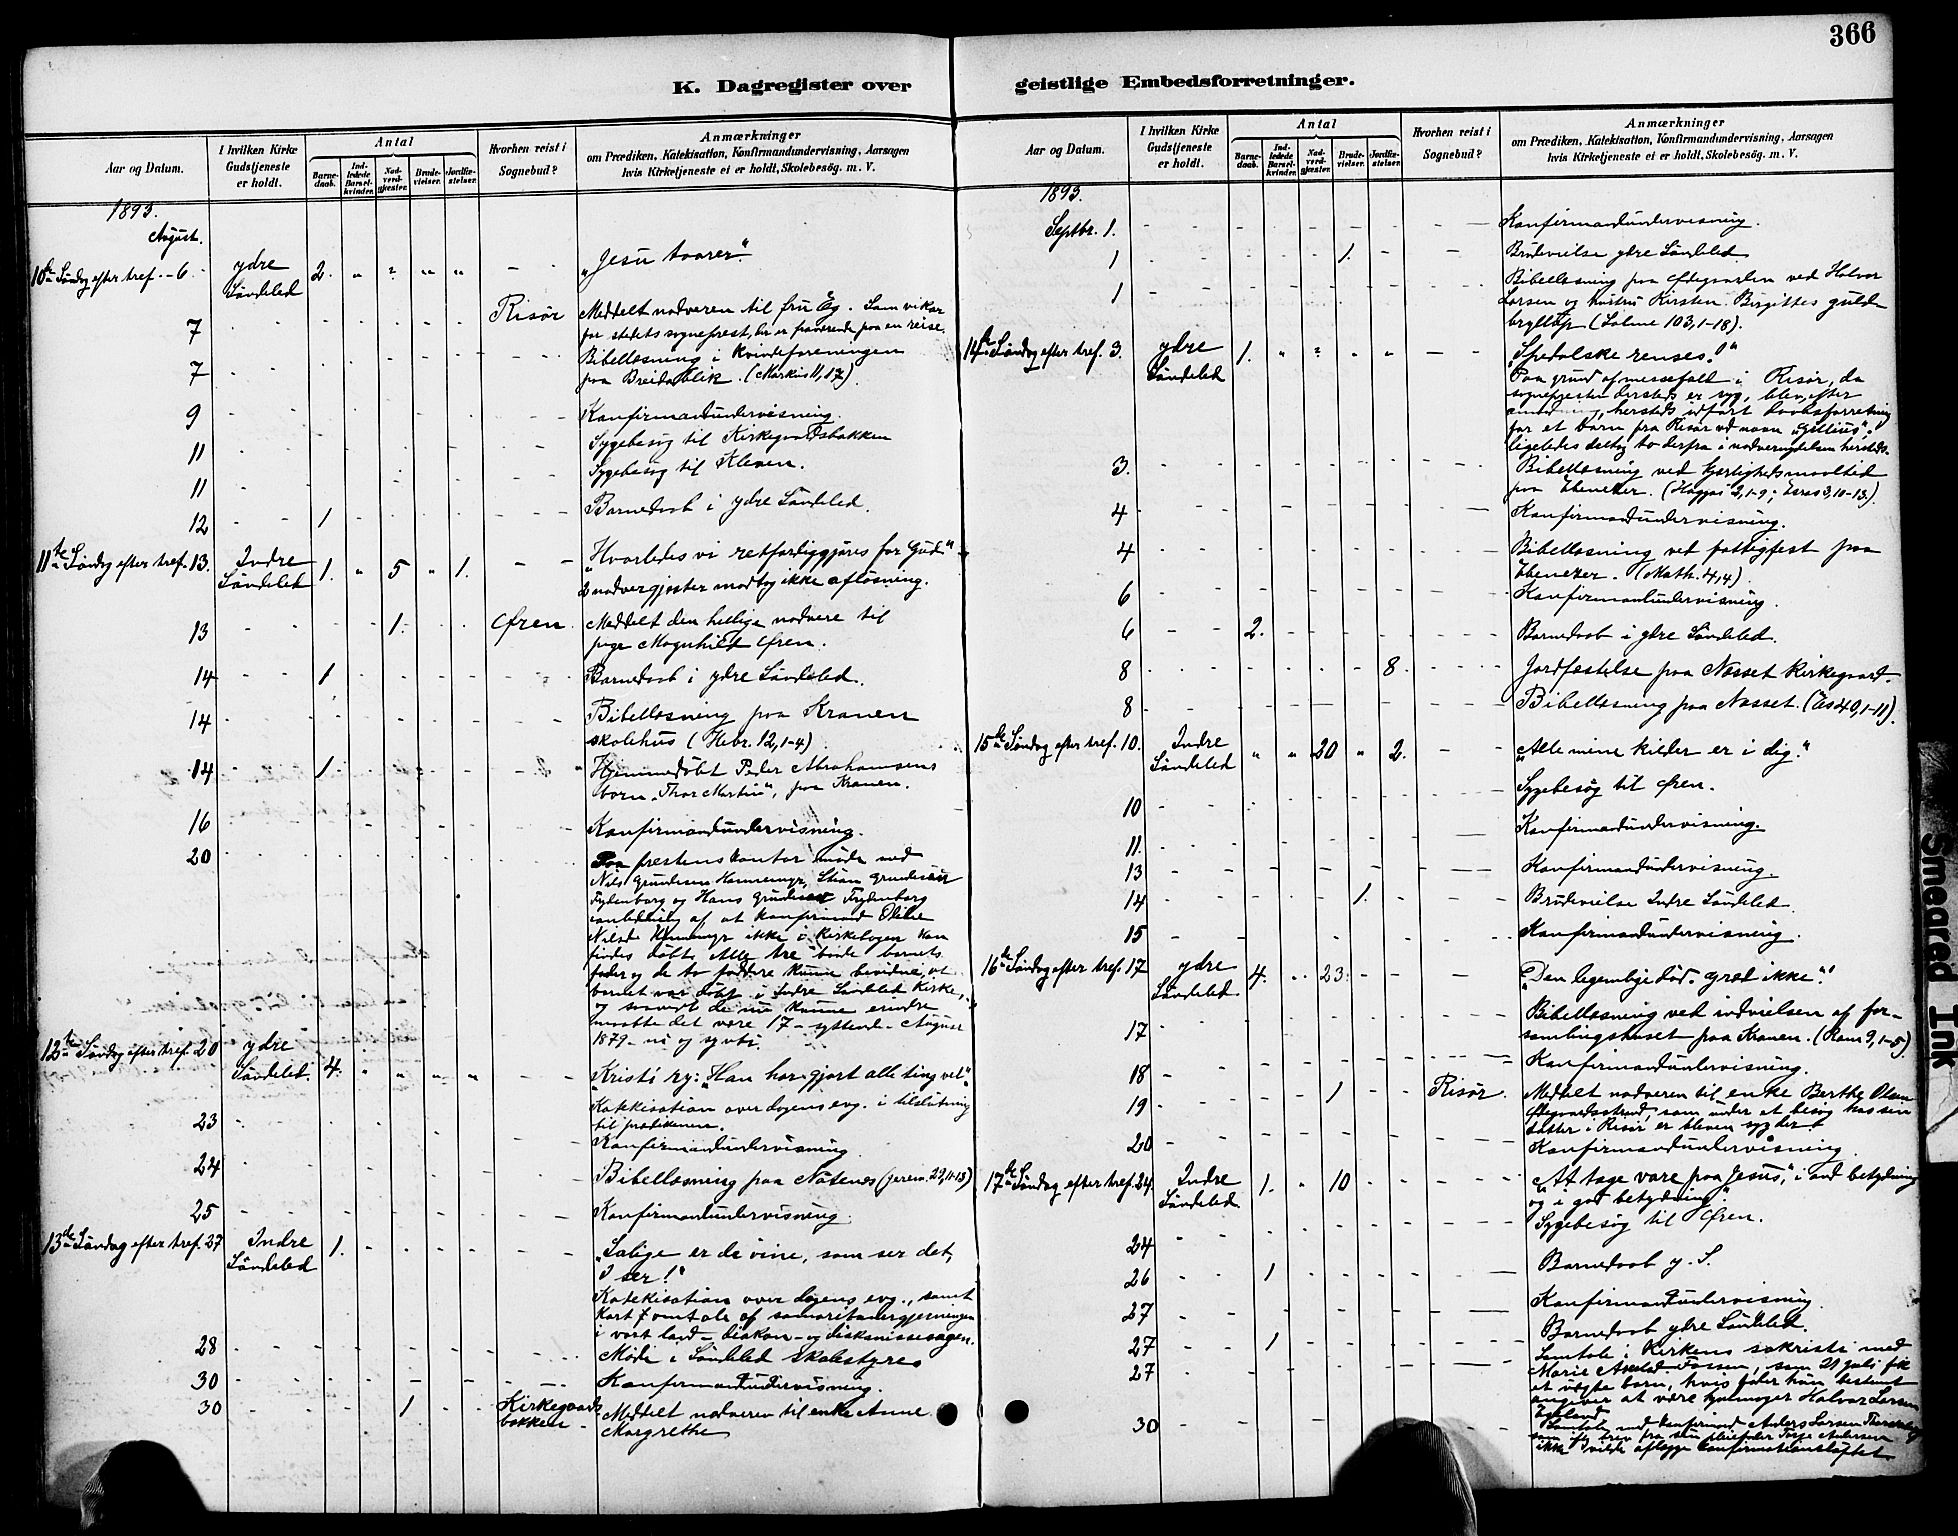 366
K. Dagregister over geistlige Embedsforretninger.
Aar og Datum.
I hvilken Kirke Gudstjeneste er holdt.
Antal
Barnedaab.
Indledede Barselkvinder.
Nadverdgjæster.
Brudevielser.
Jordfæstelser.
Hvorhen reist i Sognebud?
Anmærkninger
om Prædiken, Katekisation, Konfirmandundervisning, Aarsagen
hvis Kirketjeneste ei er holdt, Skolebesög. m. V.
1893.
August.
10de Søndag efter tref. - 6. ydre Søndeled 2. " ? " " - - "Jesu taarer".
7 Risør Meddelt nadveren til fru Eg. Som vikar
for stedets sogneprest, der er fraværende paa en reise.
7 Bibellæsning i Kvindeforeningen
paa Breidablik. (Markus 11, 17).
9 Konfirmandundervisning.
11 Sygebesøg til Kirkegaardsbakken
11 Sygebesøg til Kleven.
12 1 Barnedaab i ydre Søndeled.
11te Søndag efter tref. 13. Indre Søndeled 1. " 5 " 1. - - "Hvorledes vi retfærdiggjøres for Gud"
2 nadvergjester modtog ikke afløsning.
13 1. Øren Meddelt den hellige nadvere til
pige Magnhild Øren.
14 1 Barnedaab i ydre Søndeled.
14 Bibellæsning paa Kranen
skolehus (Hebr. 12, 1-4)
14 1 Hjemmedøbt Peder Abrahamsens
barn "Thor Martin", paa Kranen.
16 Konfirmandundervisning.
20 Paa prestens kontor møde ved
Nils Grundesen Hammemyr, Stian Grundesen
Fydenborg og Hans Grundesen Frydenborg
anledning af at konfirmand
Nilsd. Hammemyr ikke i kirkebogen kan
findes døbt. Alle tre både barnets
fader og de to faddere kunne bevidne, at
barnet var døbt i Indre Søndeled Kirke,
og saavidt de nu kunne erindre
maatte det være 17 - syttende - August
1879 - ni og sytti.
12te Søndag efter tref. 20 ydre Søndeled. 4. " " " " - - "Kristi ry: "Han har gjort alle ting vel".
Katekisation over dagens evg. i tilslutning
til prædikenen.
23 Konfirmandundervisning.
24 Bibellæsning paa Nätenes (Jerem. 29, 11-13)
25 Konfirmandundervisning.
13de Søndag efter tref. 27 Indre Søndeled 1. "Salige er de øine, som ser det,
I ser!"
Katekisation over dagens evg., samt
kort omtale af samaritangjerningen
i vort land - diakon - og diakonissesagen.
28 Møde i Søndeled Skolestyre
30 Konfirmandundervisning.
30 1 Kirkegaardsbakken Meddelt nadveren til enke Anne
Margrethe
1893.
Septbr. 1. Konfirmandundervisning.
1 1. Brudevielse ydre Søndeled
1 Bibellæsning paa Ødegaarden ved Halvor
Larsen og hustru Kirsten Birgittes guld-
bryllup (Salme 103, 1-18).
14de Søndag efter tref. 3. ydre Søndeled 1. " ? " " - - "Spedalske renses!"
Paa grund af messefald i Risør, da
sognepresten dersteds er syg, blev, efter
anmodning, hersteds udført daabsforretning
for et barn fra Risør ved navn
ligeledes deltog to derfra i nadvernydelsen hersteds.
3. Bibellæsning ved kjærlighedsmaaltid
paa Ebenezer. (Haggai 2, 1-9; Esras 3, 10-13).
4 Konfirmandundervisning.
4 Bibellæsning ved fattigfest paa
Ebenezer. (Math. 4, 4).
6 Konfirmandundervisning.
6 2. Barnedaab i ydre Søndeled.
8 8. Jordfestelse paa Nasset Kirkegaard.
8 Bibellæsning paa Nasset. (Es 40, 1-11).
15de Søndag efter tref. 10. Indre Søndeled " " 20 " 2. - - "Alle mine kilder er i dig."
10 Sygebesøg til Øren.
11. Konfirmandundervisning.
13 Konfirmandundervisning.
14 1. Brudevielse Indre Søndeled.
15 Konfirmandundervisning.
16de Søndag efter tref. 17 ydre Søndeled 4. " 23. "Den legemlige død. Græt ikke"!
17 Bibellæsning ved indvielsen af for-
samlingshuset paa Kranen. (Rom 9, 1-5)
18 Konfirmandundervisning.
19 1 Risør. Meddelt nadveren til enke Berthe Olsen
Ødegaardsstrand, som under et besøg hos sin
datter i Risør er bleven syg der
20 Konfirmandundervisning.
17de Søndag efter tref. 24. Indre Søndeled 1. " 10 "At tage vare paa Jesus", i ond betydning
og i god betydning".
24 Sygebesøg til Øren.
26 1 Barnedaab y. S.
27 Konfirmandundervisning.
27 1 Barnedaab ydre Søndeled.
27 Samtale i Kirkens sakristi med
Marie Fossen, som 21 juli fik
et uægte barn, hvis fader hun bestemt
angiver at være Halvor Larsen
30 Samtale med konfirmand Anders Larsen
som ifg brev fra sin pleiefader Terje Andersen
ikke vilde aflægge konfirmationsløftet
Smeared Ink